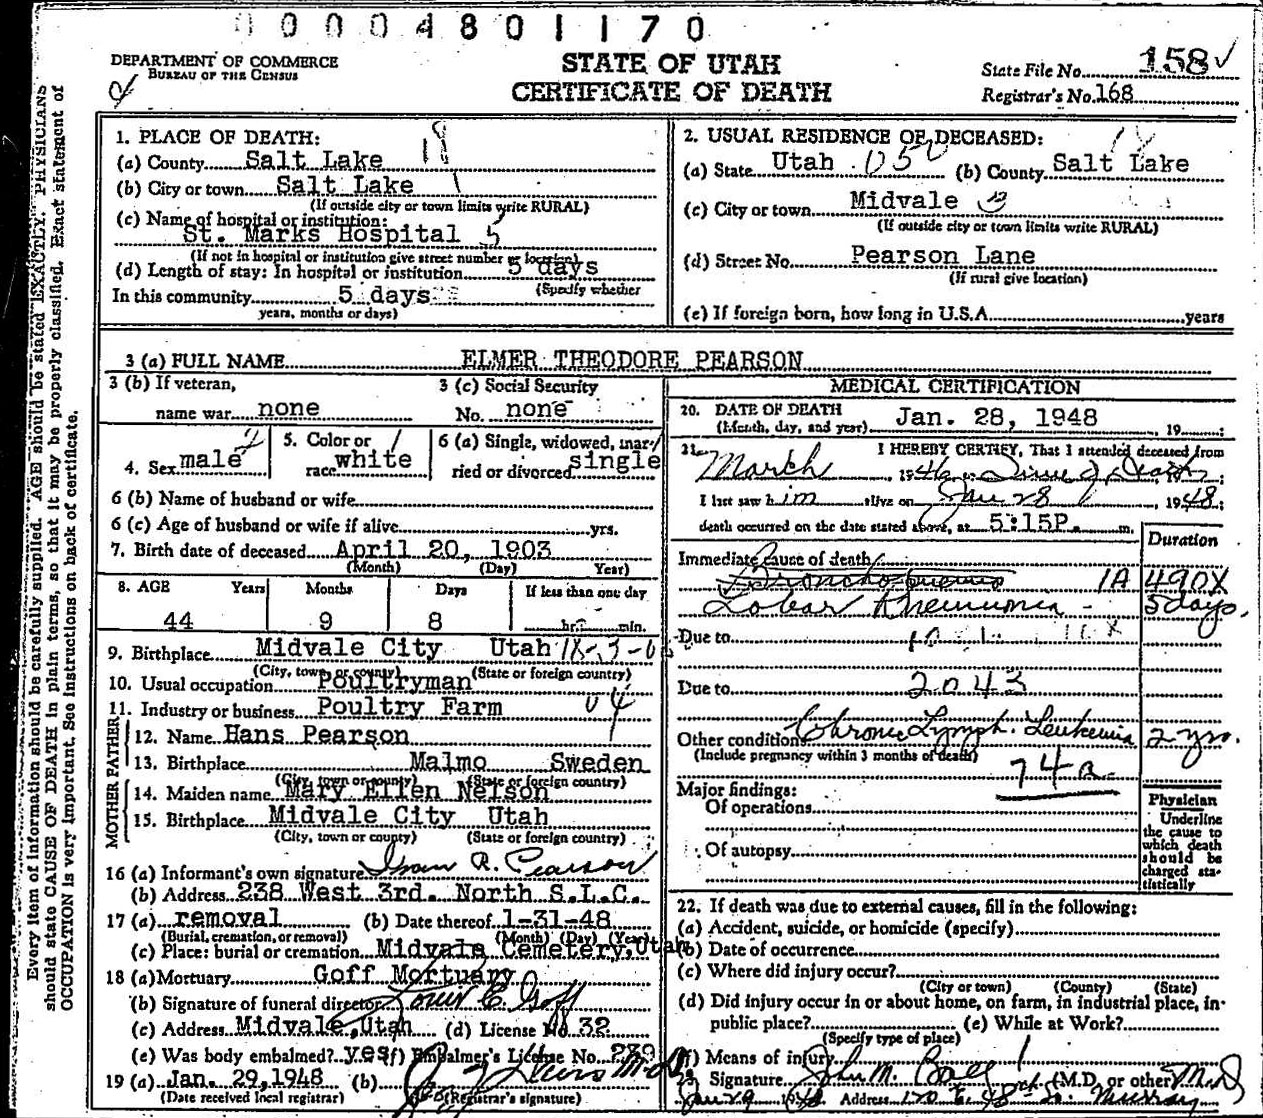 00004801170
DEPARTMENT OF COMMERCE
BUREAU OF THE CENSUS
STATE OF UTAH
CERTIFICATE OF DEATH
State File No. 158 ✓
Registrar's No. 168
Every item of information should be carefully supplied. AGE should be stated EXACTLY. PHYSICIANS
should state CAUSE OF DEATH in plain terms, so that it may be properly classified. Exact statement of
OCCUPATION is very important. See instructions on back of certificate.
1. PLACE OF DEATH: 18
(a) County Salt Lake
(b) City or town Salt Lake 1
(If outside city or town limits write RURAL)
(c) Name of hospital or institution:
St. Marks Hospital 5
(If not in hospital or institution give street number or location)
(d) Length of stay: In hospital or institution 5 days
(Specify whether
In this community 5 days
years, months or days)
2. USUAL RESIDENCE OF DECEASED: 18
(a) State Utah 050 (b) County Salt Lake
(c) City or town Midvale 3
(If outside city or town limits write RURAL)
(d) Street No. Pearson Lane
(If rural give location)
(e) If foreign born, how long in U.S.A. years
3 (a) FULL NAME ELMER THEODORE PEARSON
3 (b) If veteran,
name war none
3 (c) Social Security
No. none
4. Sex male
5. Color or
race white
6 (a) Single, widowed, mar-
ried or divorced single
6 (b) Name of husband or wife
6 (c) Age of husband or wife if alive yrs.
7. Birth date of deceased April 20, 1903
(Month) (Day) Year)
8. AGE Years Months Days If less than one day
44 9 8 hr. min.
9. Birthplace Midvale City Utah
(City, town or county) (State or foreign country)
10. Usual occupation Poultryman
11. Industry or business Poultry Farm 04
FATHER
12. Name Hans Pearson
13. Birthplace Malmo Sweden
(City, town or county) (State or foreign country)
MOTHER
14. Maiden name Mary Ellen Nelson
15. Birthplace Midvale City Utah
(City, town or county) (State or foreign country)
16 (a) Informant's own signature R. Pearson
(b) Address 238 West 3rd. North S.L.C.
17 (a) removal (b) Date thereof 1-31-48
(Burial, cremation, or removal) (Month) (Day) (Year)
(c) Place: burial or cremation Midvale Cemetery, Utah
18 (a) Mortuary Goff Mortuary
(b) Signature of funeral director Louis E. Goff
(c) Address Midvale, Utah (d) License No. 32
(e) Was body embalmed? yes (f) Embalmer's License No. 239
19 (a) Jan. 29, 1948 (b) M.D.
(Date received local registrar) (Registrar's signature)
MEDICAL CERTIFICATION
20. DATE OF DEATH Jan. 28, 1948
(Month, day, and year) , 19 ;
21. I HEREBY CERTIFY, That I attended deceased from
March 1946 to Time of Death, 19 ;
I last saw him alive on Jan 28, 1948;
death occurred on the date stated above, at 5:15P. m.
Duration
Immediate cause of death
Bronchopneumonia 1A 490X
Lobar Pneumonia - 5 days.
Due to
Due to 2043
Other conditions Chronic Lymph. Leukemia 2 yrs.
(Include pregnancy within 3 months of death) 74a
Major findings:
Of operations
Of autopsy
Physician
Underline
the cause to
which death
should be
charged sta-
tistically
22. If death was due to external causes, fill in the following:
(a) Accident, suicide, or homicide (specify)
(b) Date of occurrence
(c) Where did injury occur?
(City or town) (County) (State)
(d) Did injury occur in or about home, on farm, in industrial place, in
public place? (e) While at Work?
(Specify type of place)
(f) Means of injury
23. Signature John M. (M.D. or other) M.D.
Jan 29 1948 Address Murray